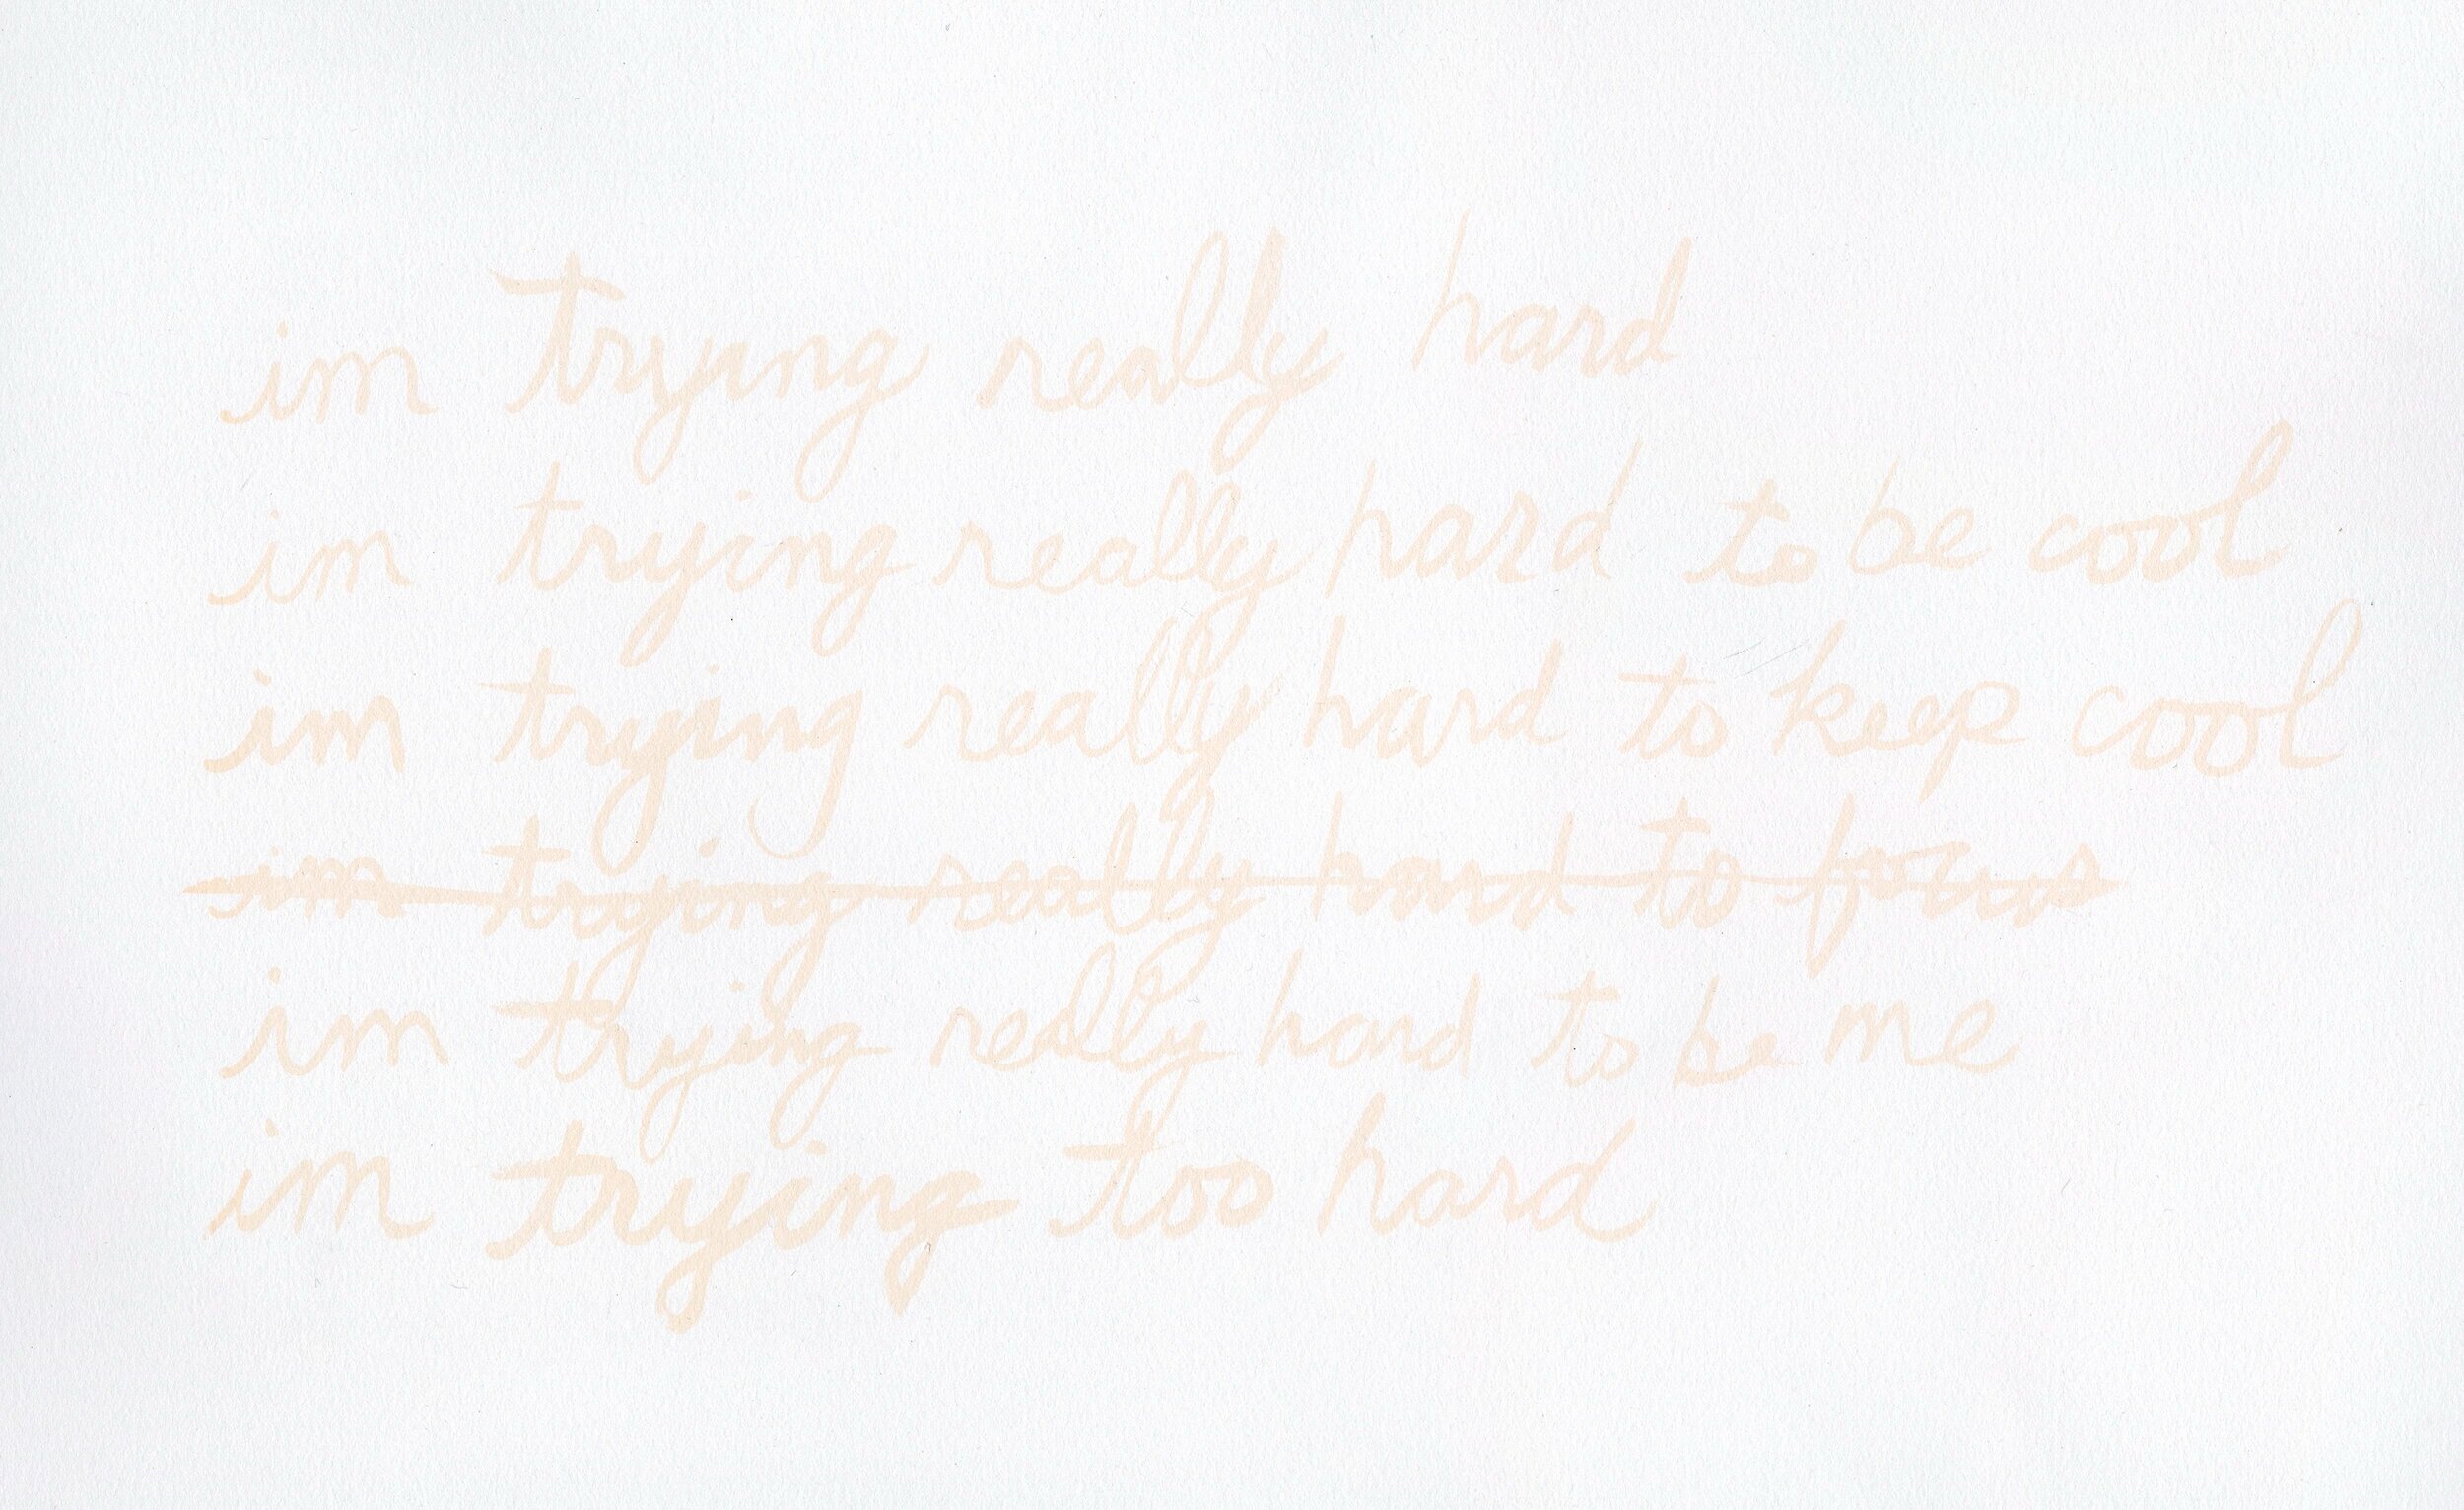 im trying really hard
im trying really hard to be cool
im trying really hard to keep cool
im trying really hard to focus
im trying really hard to be me
im trying too hard